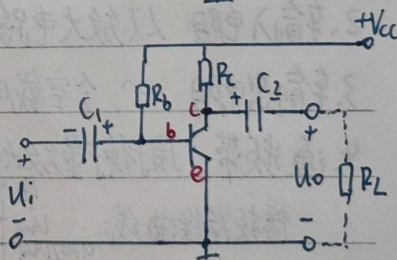 +Vcc
Rb
Rc
C1
+
C2
+
-
+
c
b
e
+
Ui
-
+
Uo
-
RL